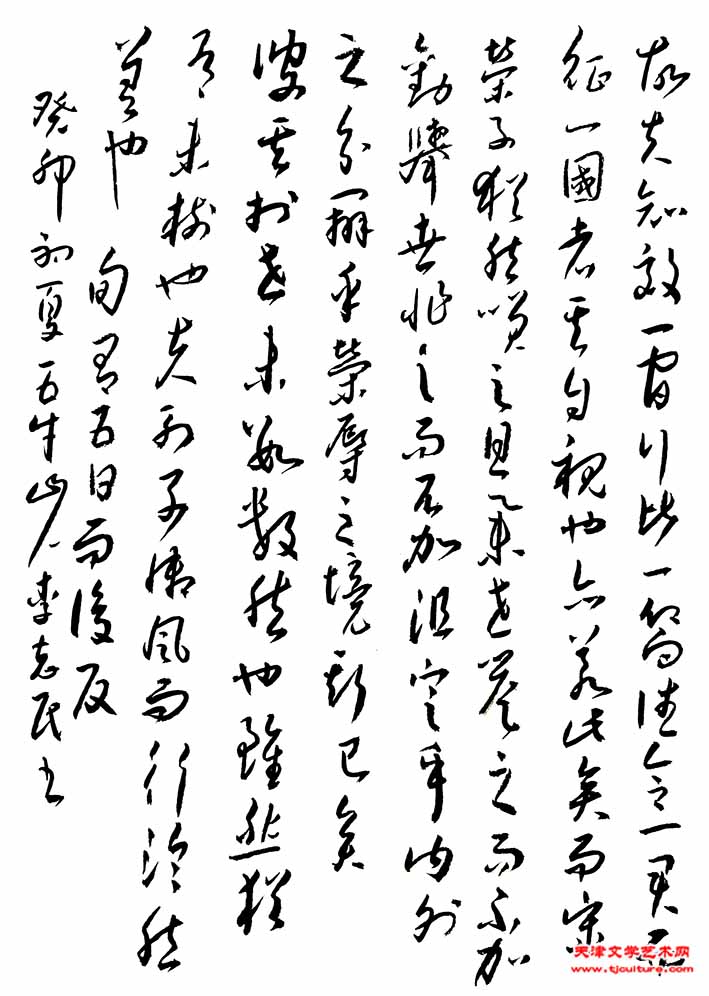 故夫知效一官行比一鄉德合一君而
征一國者其自視也亦若此矣而宋
榮子猶然笑之且舉世譽之而不加
勸舉世非之而不加沮定乎內外
之分辯乎榮辱之境斯已矣
彼其於世未數數然也雖然猶
有未樹也夫列子御風而行泠然
善也 旬有五日而後反
癸卯初夏 李志民書
天津文学艺术网
www.tjculture.com